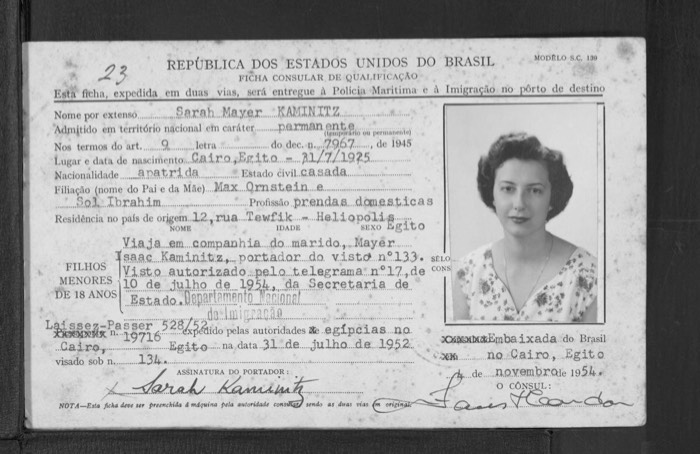 23
REPÚBLICA DOS ESTADOS UNIDOS DO BRASIL
MODÊLO S.C. 139
FICHA CONSULAR DE QUALIFICAÇÃO
Esta ficha, expedida em duas vias, será entregue à Polícia Marítima e à Imigração no pôrto de destino
Nome por extenso Sarah Mayer KAMINITZ
Admitido em território nacional em caráter permanente
(temporário ou permanente)
Nos termos do art. 9 letra do dec. n. 7967, de 1945
Lugar e data de nascimento Cairo, Egito - 31/7/1925
Nacionalidade apatrida Estado civil casada
Filiação (nome do Pai e da Mãe) Max Ornstein e
Sol Ibrahim Profissão prendas domesticas
Residência no país de origem 12, rua Tewfik - Heliopolis
NOME IDADE SEXO Egito
FILHOS MENORES DE 18 ANOS
Viaja em companhia do marido, Mayer
Isaac Kaminitz, portador do visto nº133.
Visto autorizado pelo telegrama nº17, de
10 de julho de 1954, da Secretaria de
Estado. Departamento Nacional
de Imigração
SÊLO
CONS
Laissez-Passer 528/52
n. 19716 expedido pelas autoridades egípcias no
Cairo, Egito na data 31 de julho de 1952
visado sob n. 134.
ASSINATURA DO PORTADOR:
x Sarah Kaminitz
NOTA—Esta ficha deve ser preenchida à máquina pela autoridade consular sendo as duas vias em original.
Embaixada do Brasil
no Cairo, Egito
de novembro de 1954.
O CÔNSUL: